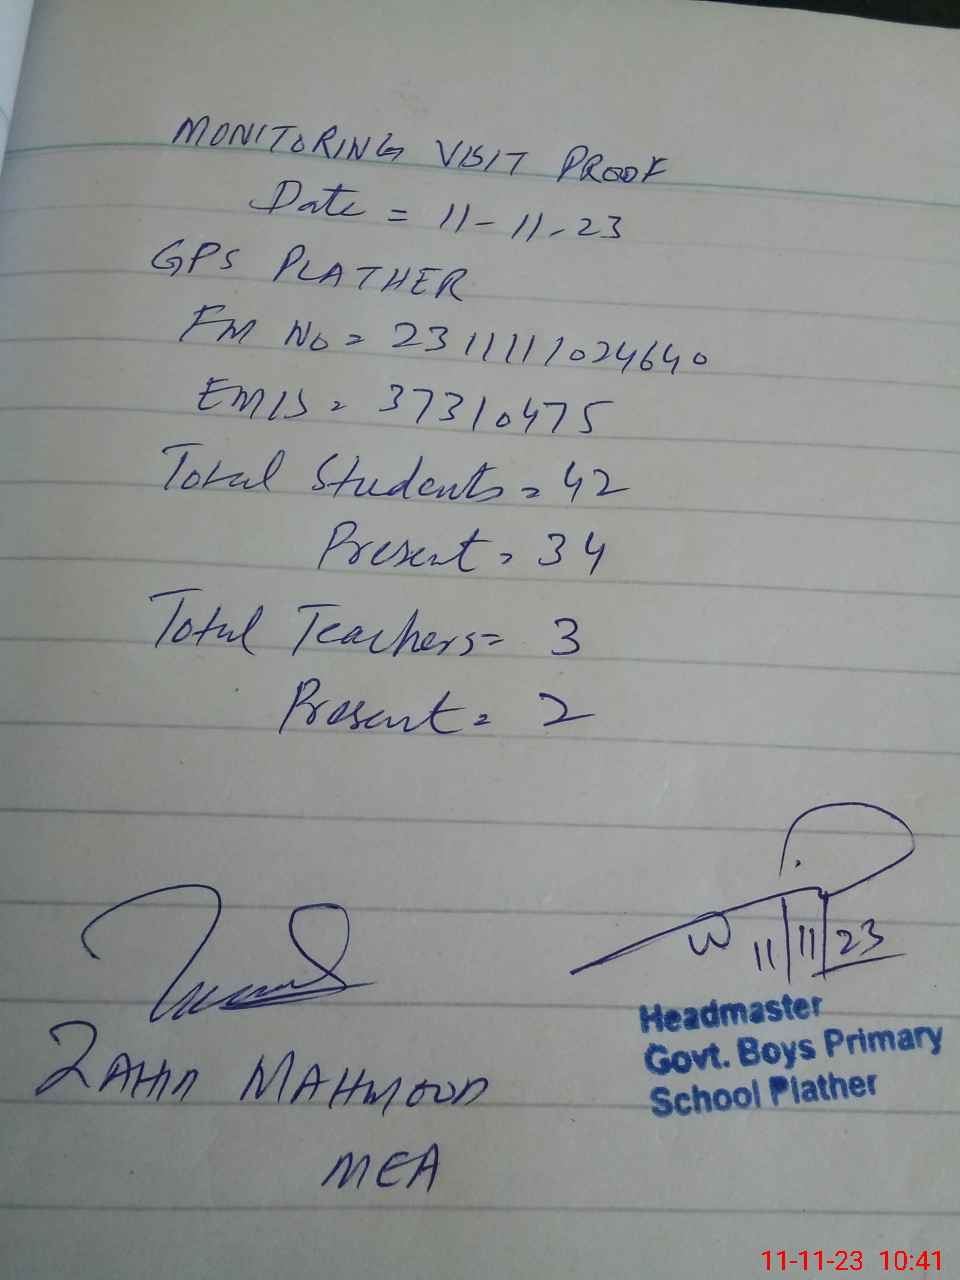 MONITORING VISIT PROOF
Date = 11-11-23
GPS PLATHER
FM No = 231111024640
EMIS = 37310475
Total Students = 42
Present = 34
Total Teachers = 3
Present = 2
11/11/23
Headmaster
Govt. Boys Primary
School Plather
MAHMOOD
MEA
11-11-23 10:41